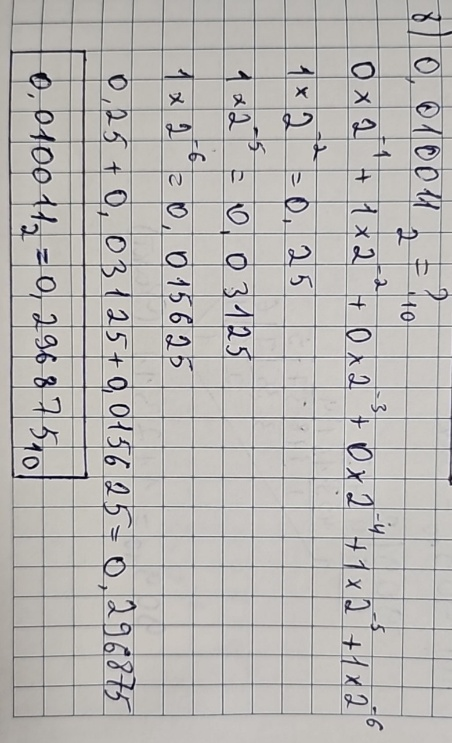 8) 0,010011₂ = ?₁₀
0×2⁻¹ + 1×2⁻² + 0×2⁻³ + 0×2⁻⁴ + 1×2⁻⁵ + 1×2⁻⁶
1×2⁻² = 0,25
1×2⁻⁵ = 0,03125
1×2⁻⁶ = 0,015625
0,25 + 0,03125 + 0,015625 = 0,296875
0,010011₂ = 0,296875₁₀